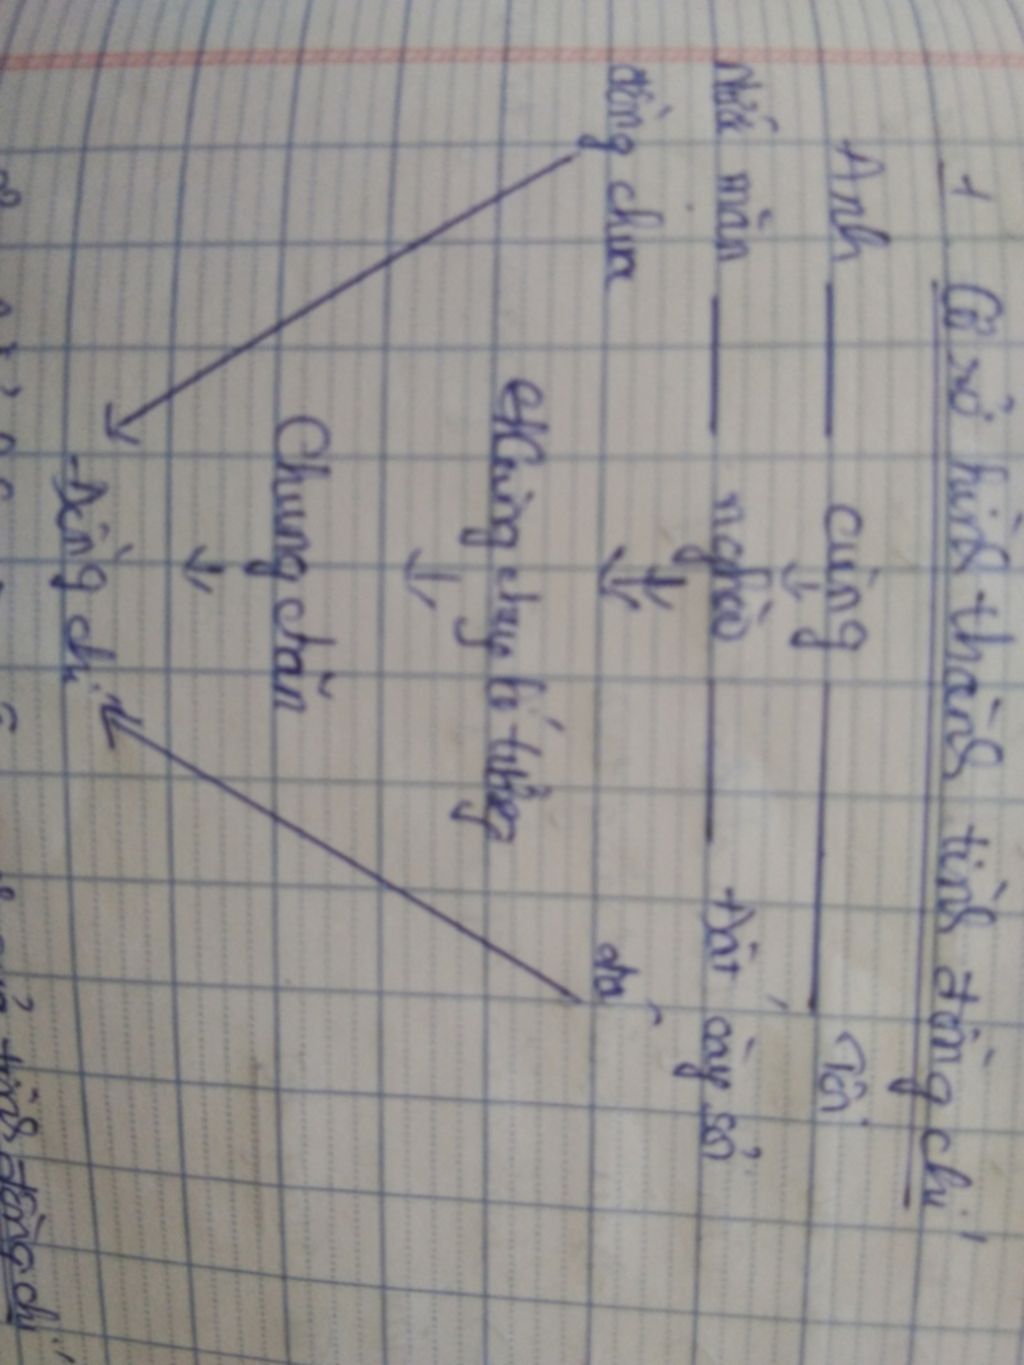 1 Cơ sở hình thành tình đồng chí
Anh cùng Tôi
Nước mặn nghèo Đất cày sỏi
đồng chua đá
Cùng chung lí tưởng
Chung chăn
Đồng chí